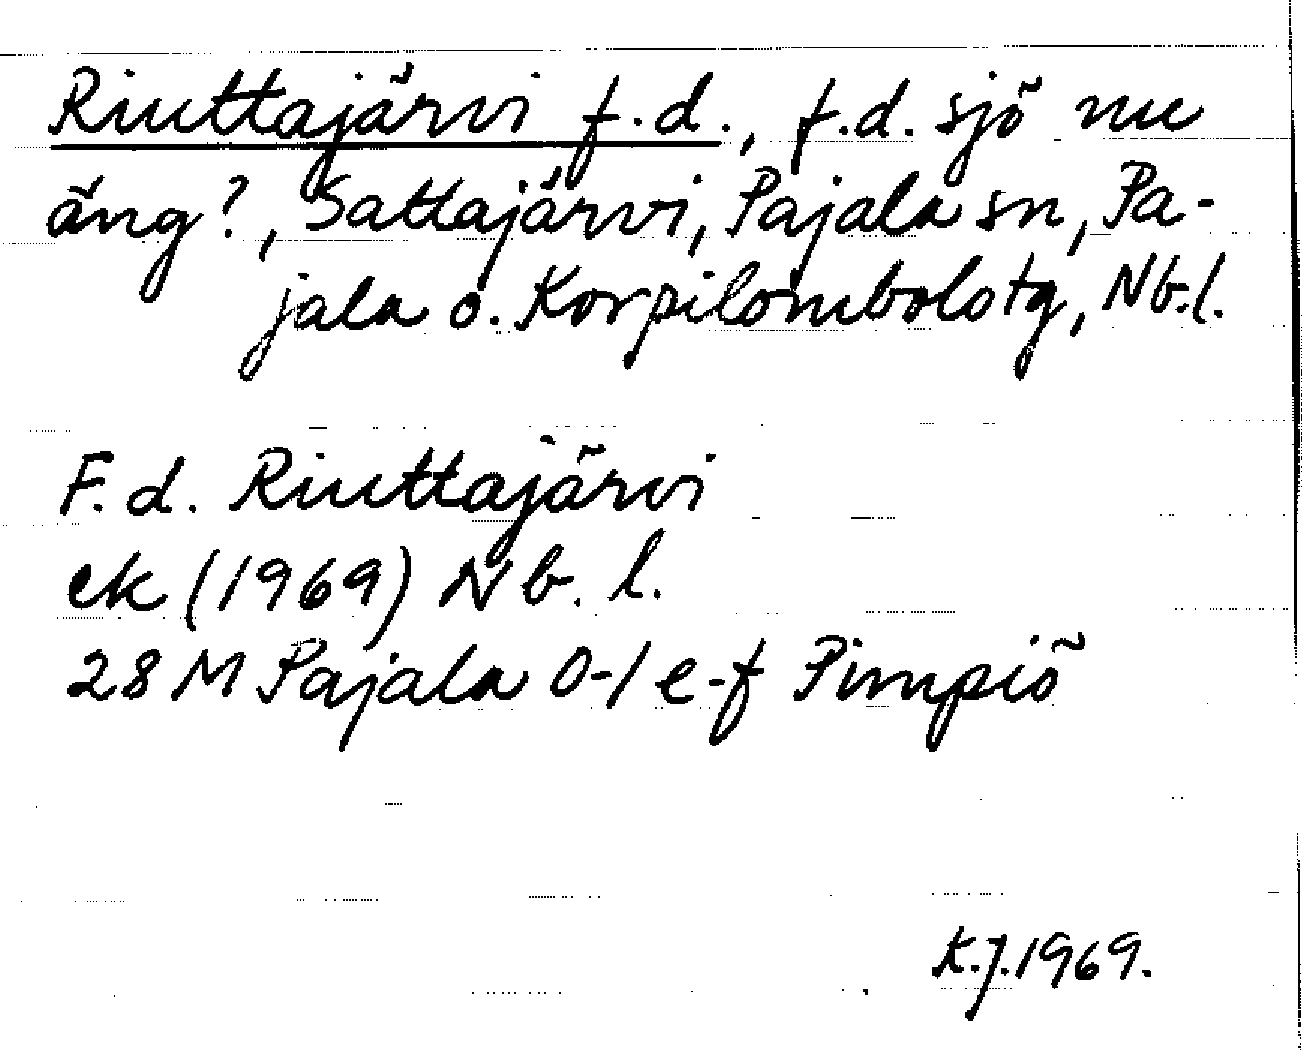 Riuttajärvi f.d., f.d. sjö nu
äng?, Sattajärvi, Pajala sn, Pa-
jala o. Korpilombolo tg, Nb.l.
F.d. Riuttajärvi
ek (1969) Nb. l.
28 M Pajala 0-1 e-f Pimpiö
K.J. 1969.